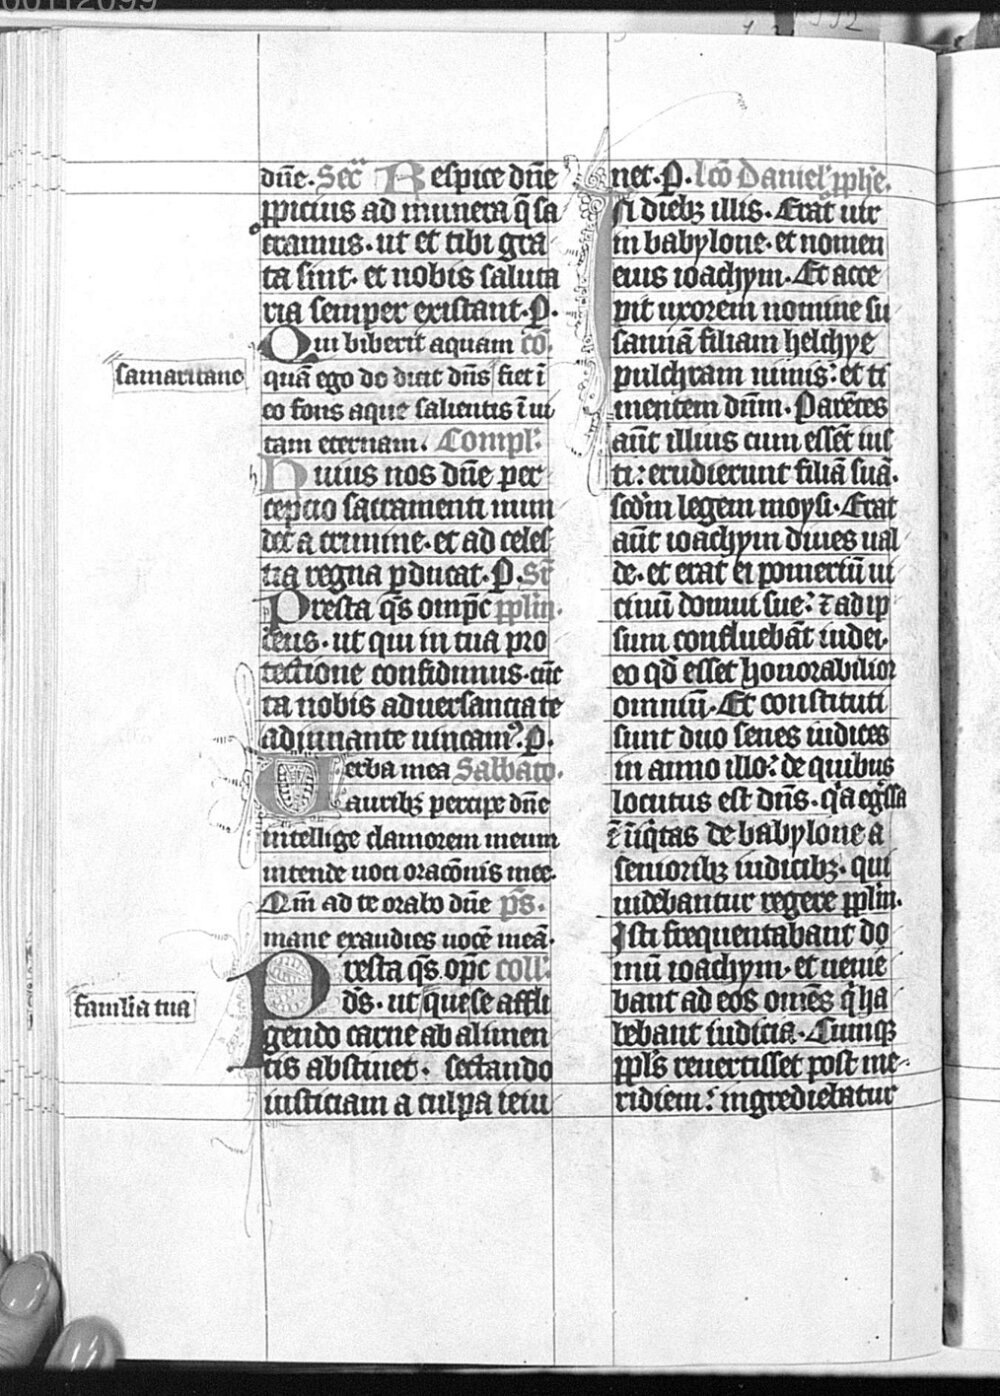 dn̄e. Sec̄ Respice dn̄e
ꝓpicius ad munera q̄ sa
cramus. ut et tibi gra
ta sint. et nobis saluta
ria semper existant. P.
Qui biberit aquam cō.
samaritano
quā ego do dicit dn̄s fiet ī
eo fons aque salientis ī ui
tam eternam. Compl̄.
Huius nos dn̄e per
ceptio sacramenti mun
det a crimine. et ad celes
tia regna ꝑducat. P. Sr̄
Presta q̄s omp̄c pp̄lm.
deus. ut qui in tua pro
tectione confidimus. cūc
ta nobis aduersancia te
adiuuante uincamꝰ. P.
Verba mea Sabbato.
auribꝫ percipe dn̄e
intellige clamorem meum
intende uoci orac̄onis mee.
Qm̄ ad te orabo dn̄e p̄s.
mane exaudies uocē meā.
Presta q̄s. op̄c coll̄.
familia tua
ds̄. ut que se affli
gendo carne ab alimen
tis abstinet. sectando
iusticiam a culpa ieiu
net. P. lc̄o Daniel̄ pph̄e.
In diebꝫ illis. Erat uir
in babylone. et nomen
eius ioachym. Et acce
pit uxorem nomine su
sannā filiam helchye
pulchram nimis: et ti
mentem dn̄m. Parētes
aūt illius cum essēt ius
ti: erudierunt filiā suā.
scd̄m legem moysi. Erat
aūt ioachym diues ual
de. et erat ei pomeriū ui
cinū domui sue: ⁊ ad ip
sum confluebāt iudei.
eo qd̄ esset honorabilior
omniū. Et constituti
sunt duo senes iudices
in anno illo: de quibus
locutus est dn̄s. q̄a eḡssa
ē īiq̄tas de babylone a
senioribꝫ iudicibꝫ. qui
uidebantur regere pp̄lm.
Isti frequentabant do
mū ioachym. et uenie
bant ad eos omēs q̄ ha
bebant iudicia. Cumqꝫ
pp̄ls reuertisset post me
ridiem: ingrediebatur